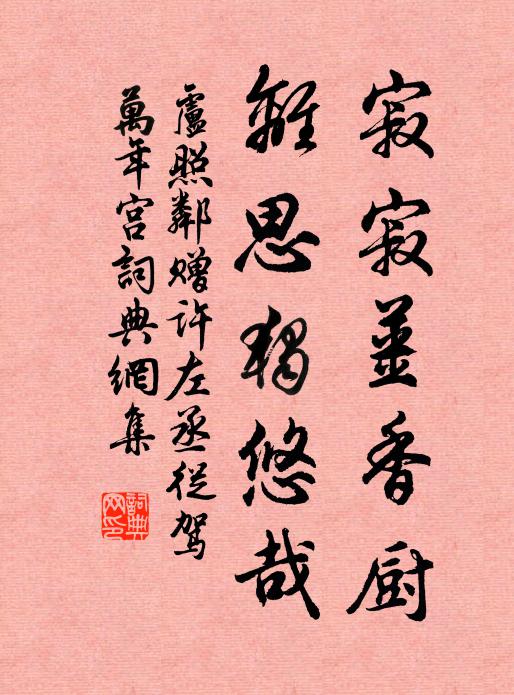 寂寂薑香厨
離思獨悠哉
盧照鄰贈許左丞從駕
萬年宮詞典網集
詞典
网印